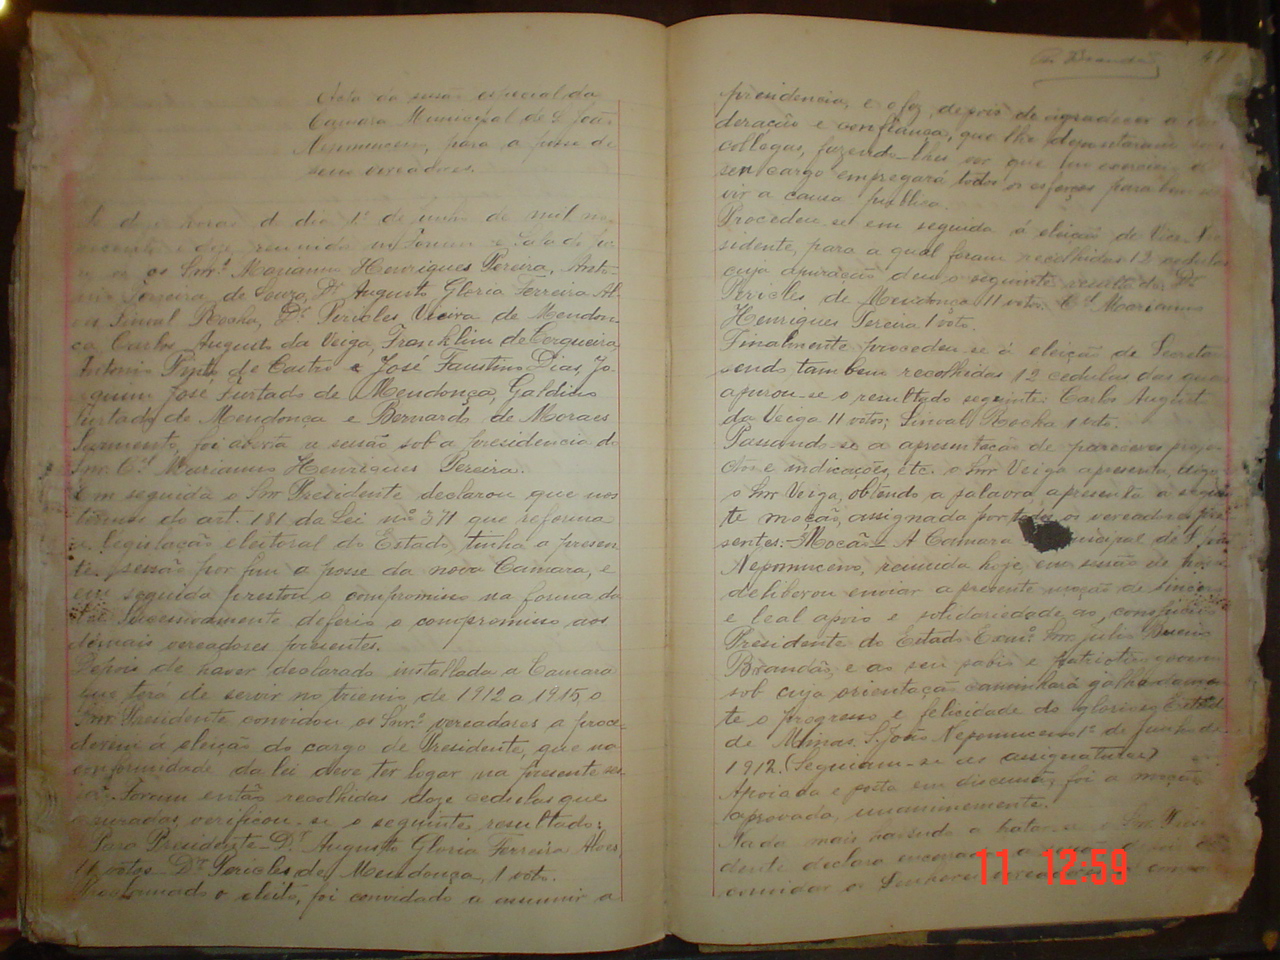 Acta da sessão especial da
Camara Municipal de S. João
Nepomuceno, para a posse de
seus vereadores.
horas do dia 1º de Junho de mil no-
vecentos e doze, reunida no Forum e Sala do
os Snrs. Marianno Henriques Pereira, Anto-
nio Ferreira de Souza, Dr. Augusto Gloria Ferreira Al-
ves, Sinval Rocha, Dr. Pericles Vieira de Mendon-
ça, Carlos Augusto da Veiga, Franklim de Cerqueira,
Antonio Pinto de Castro e José Faustino Dias, Jo-
aquim José Furtado de Mendonça, Galdino
Furtado de Mendonça e Bernardo de Moraes
Sarmento, foi aberta a sessão sob a presidencia do
Snr. Cel. Marianno Henriques Pereira.
Em seguida o Snr. Presidente declarou que nos
termos do art. 181 da Lei nº 571 que reforma
a legislação eleitoral do Estado, tinha a presen-
te sessão por fim a posse da nova Camara, e
em seguida prestou o compromisso na forma da
lei. Successivamente deferio o compromisso aos
demais vereadores presentes.
Depois de haver declarado installada a Camara
que terá de servir no trienio de 1912 a 1915, o
Snr. Presidente convidou os Snrs. vereadores a proce-
derem á eleição do cargo de Presidente, que na
conformidade da lei deve ter logar na presente ses-
são. Foram então recolhidas doze cedulas que
apuradas, verificou-se o seguinte resultado:
Para Presidente - Dr. Augusto Gloria Ferreira Alves,
11 votos - Dr. Pericles de Mendonça, 1 voto.
Proclamado o eleito, foi convidado a assumir a
presidencia, e o fez, depois de agradecer a
deração e confiança, que lhe depositaram seus
collegas, fazendo-lhes ver que no exercicio de
seu cargo empregará todos os esforços para bem ser-
vir a causa publica.
Procedeu-se em seguida á eleição de Vice-Pre-
sidente, para a qual foram recolhidas 12 cedulas
cuja apuração deu o seguinte resultado: Dr.
Pericles de Mendonça 11 votos. Cel. Marianno
Henriques Pereira 1 voto.
Finalmente procedeu-se á eleição de Secretario
sendo tambem recolhidas 12 cedulas das quaes
apurou-se o resultado seguinte: Carlos Augusto
da Veiga 11 votos; Sinval Rocha 1 voto.
Passando-se a apresentação de pareceres, projec-
tos e indicações, etc. o Snr Veiga apresenta, digo,
o Snr Veiga, obtendo a palavra, apresenta a seguin-
te moção, assignada por todos os vereadores pre-
sentes: - Moção - A Camara Municipal de S. João
Nepomuceno, reunida hoje, em sessão de posse
deliberou enviar a presente moção de sincero
e leal apoio e solidariedade ao conspicuo
Presidente do Estado Exmo. Snr. Julio Bueno
Brandão, e ao seu sabio e patriotico governo
sob cuja orientação caminhará galhardamen-
te o progresso e felicidade do glorioso Estado
de Minas. S. João Nepomuceno 1º de Junho de
1912. (Seguiam-se as assignaturas)
Apoiada e posta em discussão, foi a moção
approvada, unanimemente.
Nada mais havendo a tratar-se o Snr. Presi-
dente declara encerrada a sessão
convidar os Senhores vereadores
11 12:59